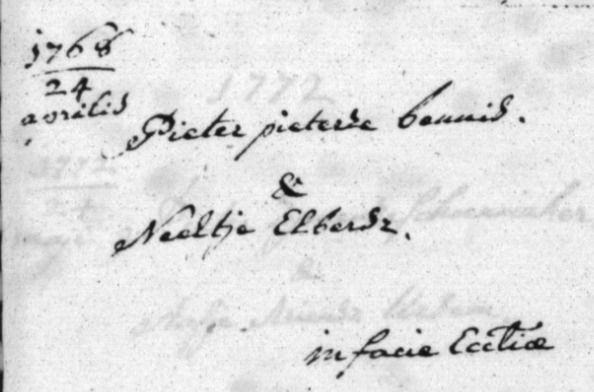 1768
24
aprilis
Pieter pieterse bennis.
&
Neeltje Elberse.
in facie Ecctiæ
1772
1772
24